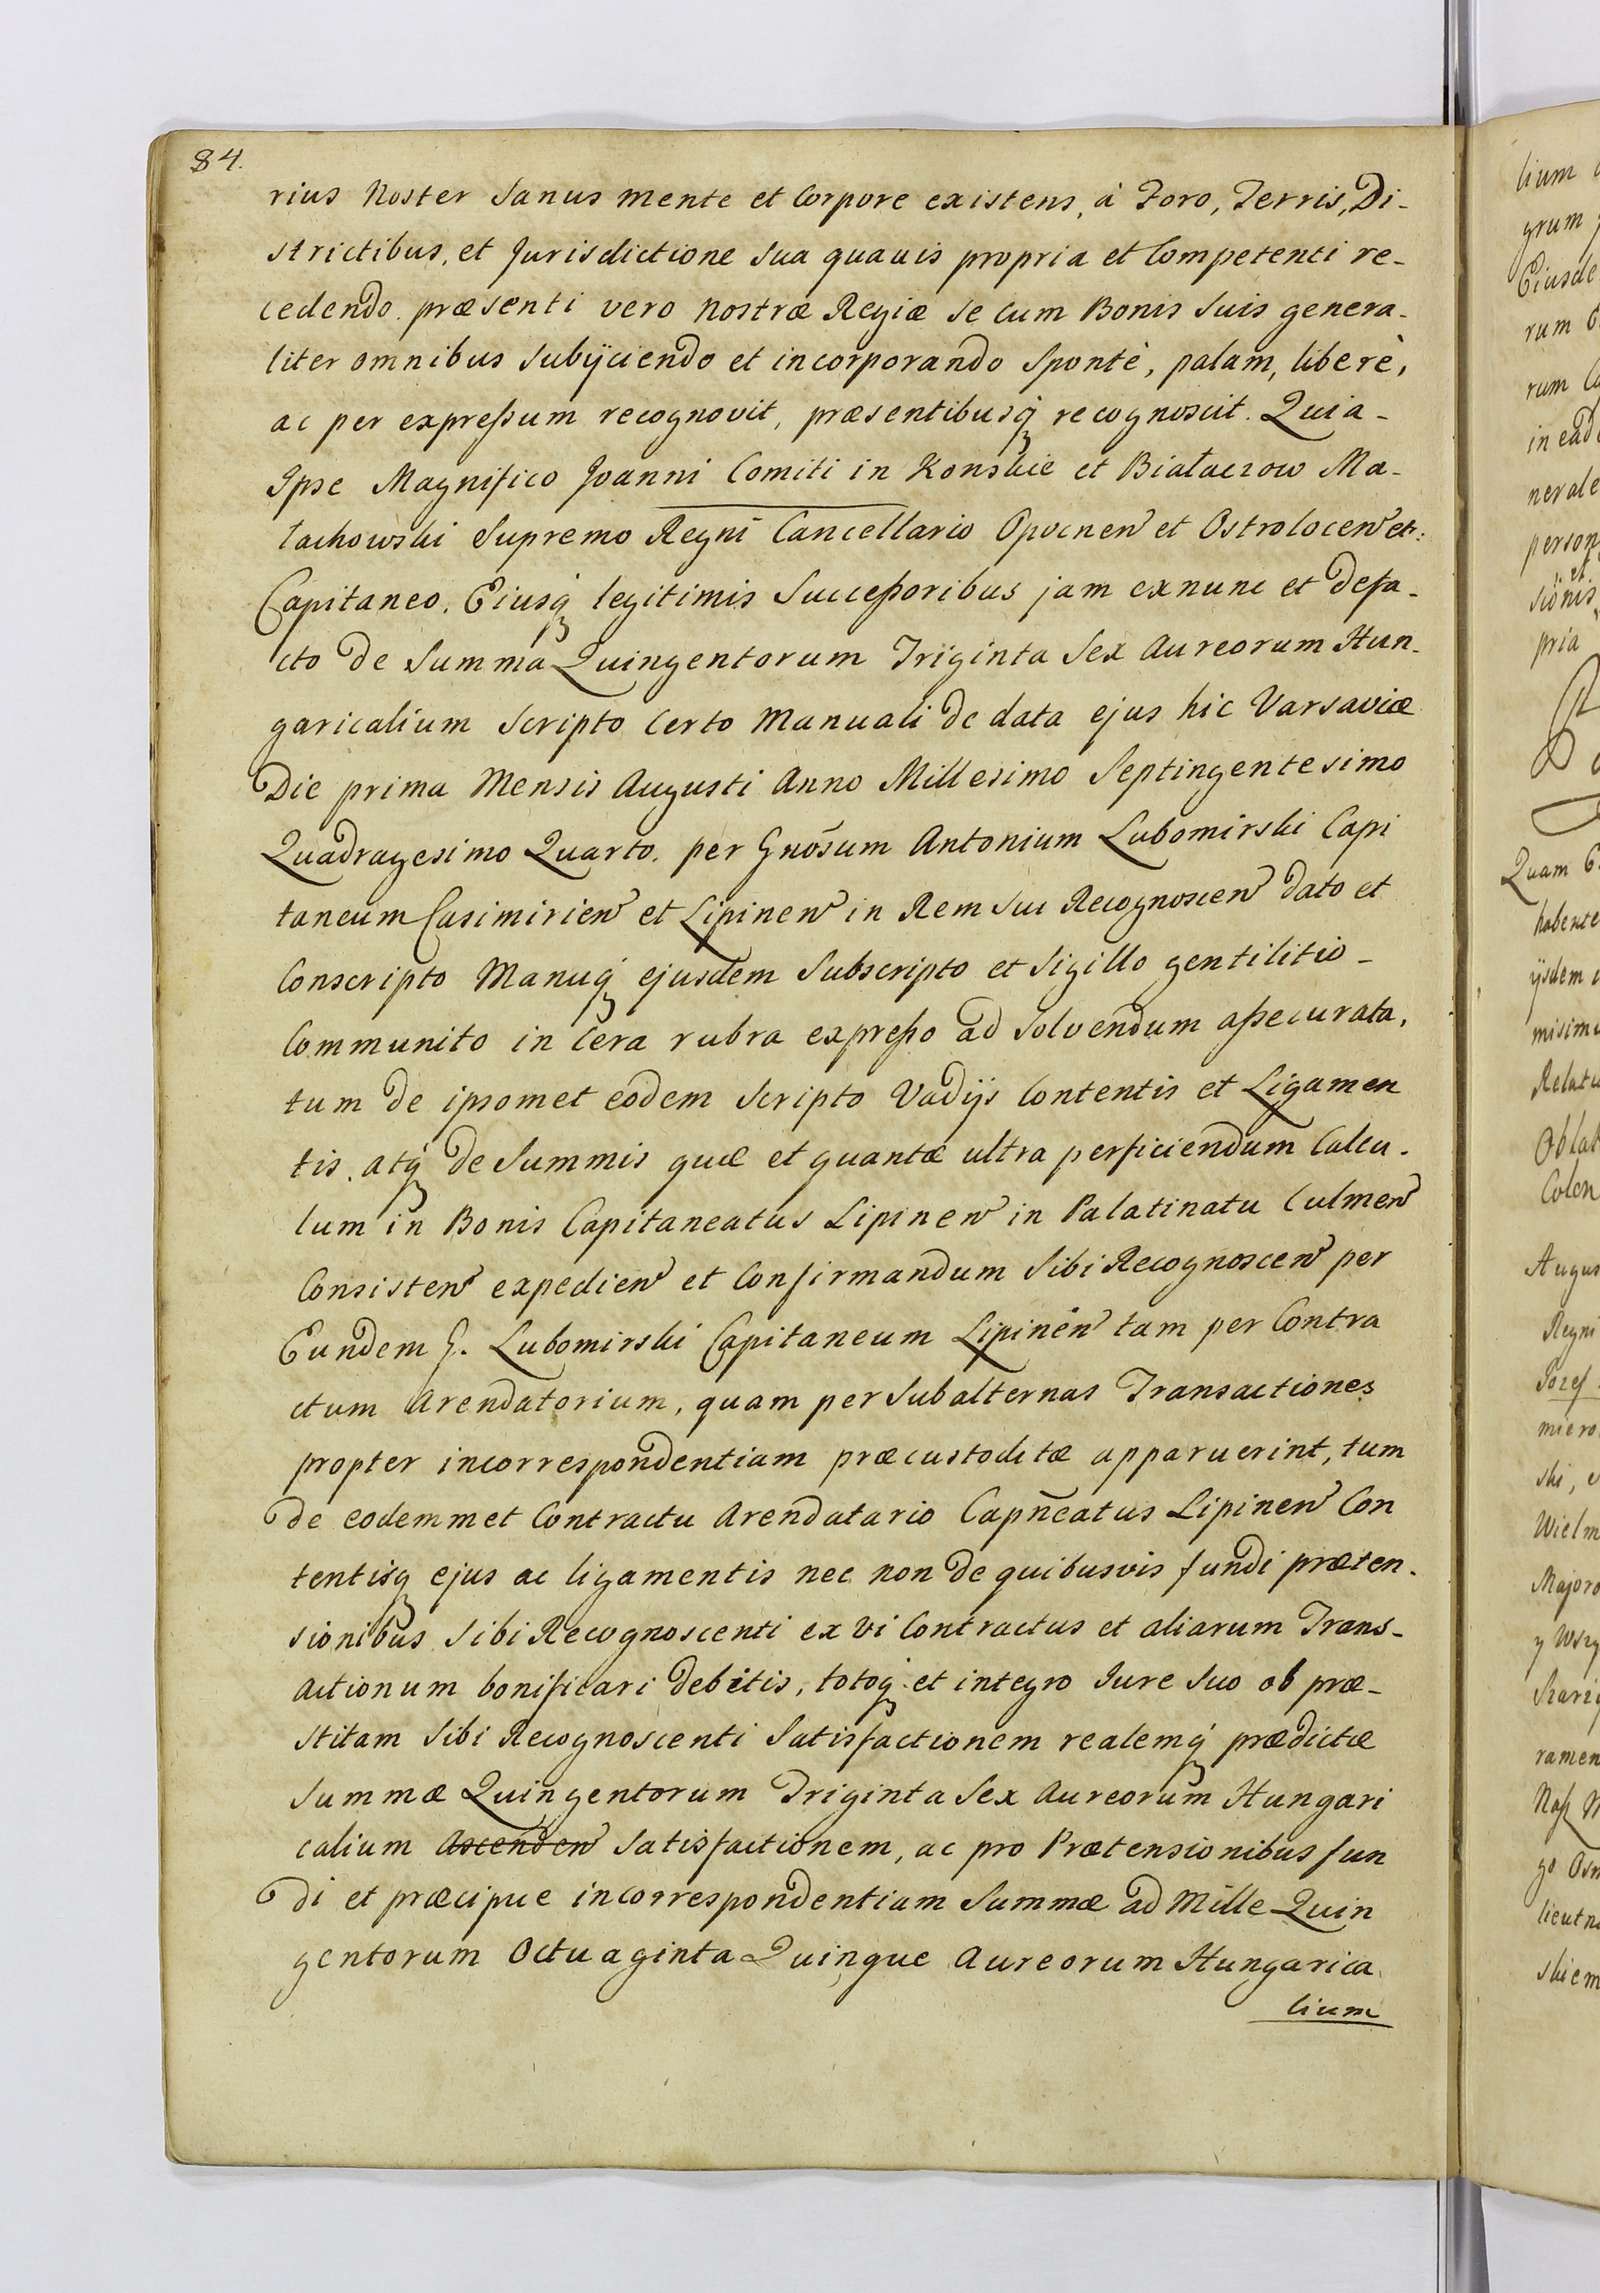 84.
rius Noster Sanus mente et Corpore existens, à Foro, Terris, Di-
strictibus, et Jurisdictione sua quavis propria et Competenti re-
cedendo. præsenti vero Nostræ Regiæ se cum Bonis suis genera-
liter omnibus subÿciendo et incorporando Spontè, palam, liberè,
ac per expreßum recognovit, præsentibusq́ recognoscit. Quia-
Ipse Magnifico Joanni Comiti in Konskie et Białaczow Ma-
łachowski Supremo Regni Cancellario Opocnen et Ostrolocen etc:
Capitaneo, Eiusq́ legitimis Succeßoribus jam exnunc et defa-
cto de Summa Quingentorum Triginta Sex Aureorum Hun-
garicalium Scripto Certo Manuali de data ejus hic Varsaviæ
Die prima Mensis Augusti Anno Millesimo Septingentesimo
Quadragesimo Quarto. per Gnōsum Antonium Lubomirski Capi
taneum Casimirien et Lipinen in Rem sui Recognoscen dato et
Conscripto Manuq́ ejusdem Subscripto et Sigillo gentilitio-
Communito in Cera rubra expreßo ad Solvendum aßecurata,
tum de ipsomet eodem Scripto Vadÿs Contentis et Ligamen
tis, atq́ de Summis quæ et quantæ ultra perficiendum Calcu-
lum in Bonis Capitaneatus Lipinen in Palatinatu Culmen
Consisten expedien et Confirmandum Sibi Recognoscen per
Eundem G. Lubomirski Capitaneum Lipinen tam per Contra
ctum Arendatorium, quam per Subalternas Transactiones
propter incorrespondentiam præcustoditæ apparuerint, tum
de eodemmet Contractu Arendatario Capn̄eatus Lipinen Con
tentisq́ ejus ac ligamentis nec non de quibusvis fundi præten-
sionibus Sibi Recognoscenti ex vi Contractus et aliarum Trans-
actionum bonificari debitis, totoq́ et integro Jure suo ob præ-
stitam Sibi Recognoscenti Satisfactionem realemq́ prædictæ
Summæ Quingentorum Triginta Sex Aureorum Hungari
calium Ascenden Satisfactionem, ac pro Prætensionibus fun
di et præcipue incorrespondentiam Summæ ad Mille Quin
gentorum Octuaginta Quinque Aureorum Hungarica
lium